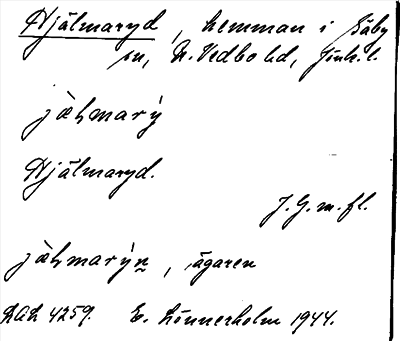 Hjälmaryd, hemman i Säby
sn, N. Vedbo hd, Jönk. l.
jäḷmarÿ
Hjälmaryd.
J. G. m. fl.
jäḷmarÿn, ägaren
LAL 4259. E. Lönnerholm 1944.